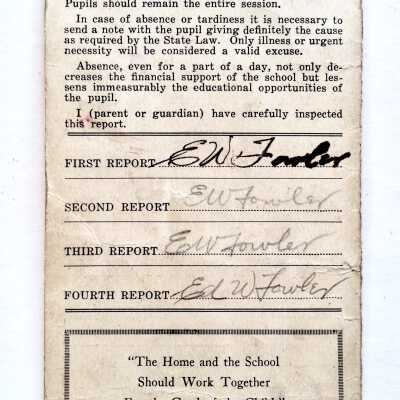 Pupils should remain the entire session.
In case of absence or tardiness it is necessary to
send a note with the pupil giving definitely the cause
as required by the State Law. Only illness or urgent
necessity will be considered a valid excuse.
Absence, even for a part of a day, not only de-
creases the financial support of the school but les-
sens immeasurably the educational opportunities of
the pupil.
I (parent or guardian) have carefully inspected
this report.
FIRST REPORT E W. Fowler
SECOND REPORT E W Fowler
THIRD REPORT E W Fowler
FOURTH REPORT Ed W Fowler
"The Home and the School
Should Work Together